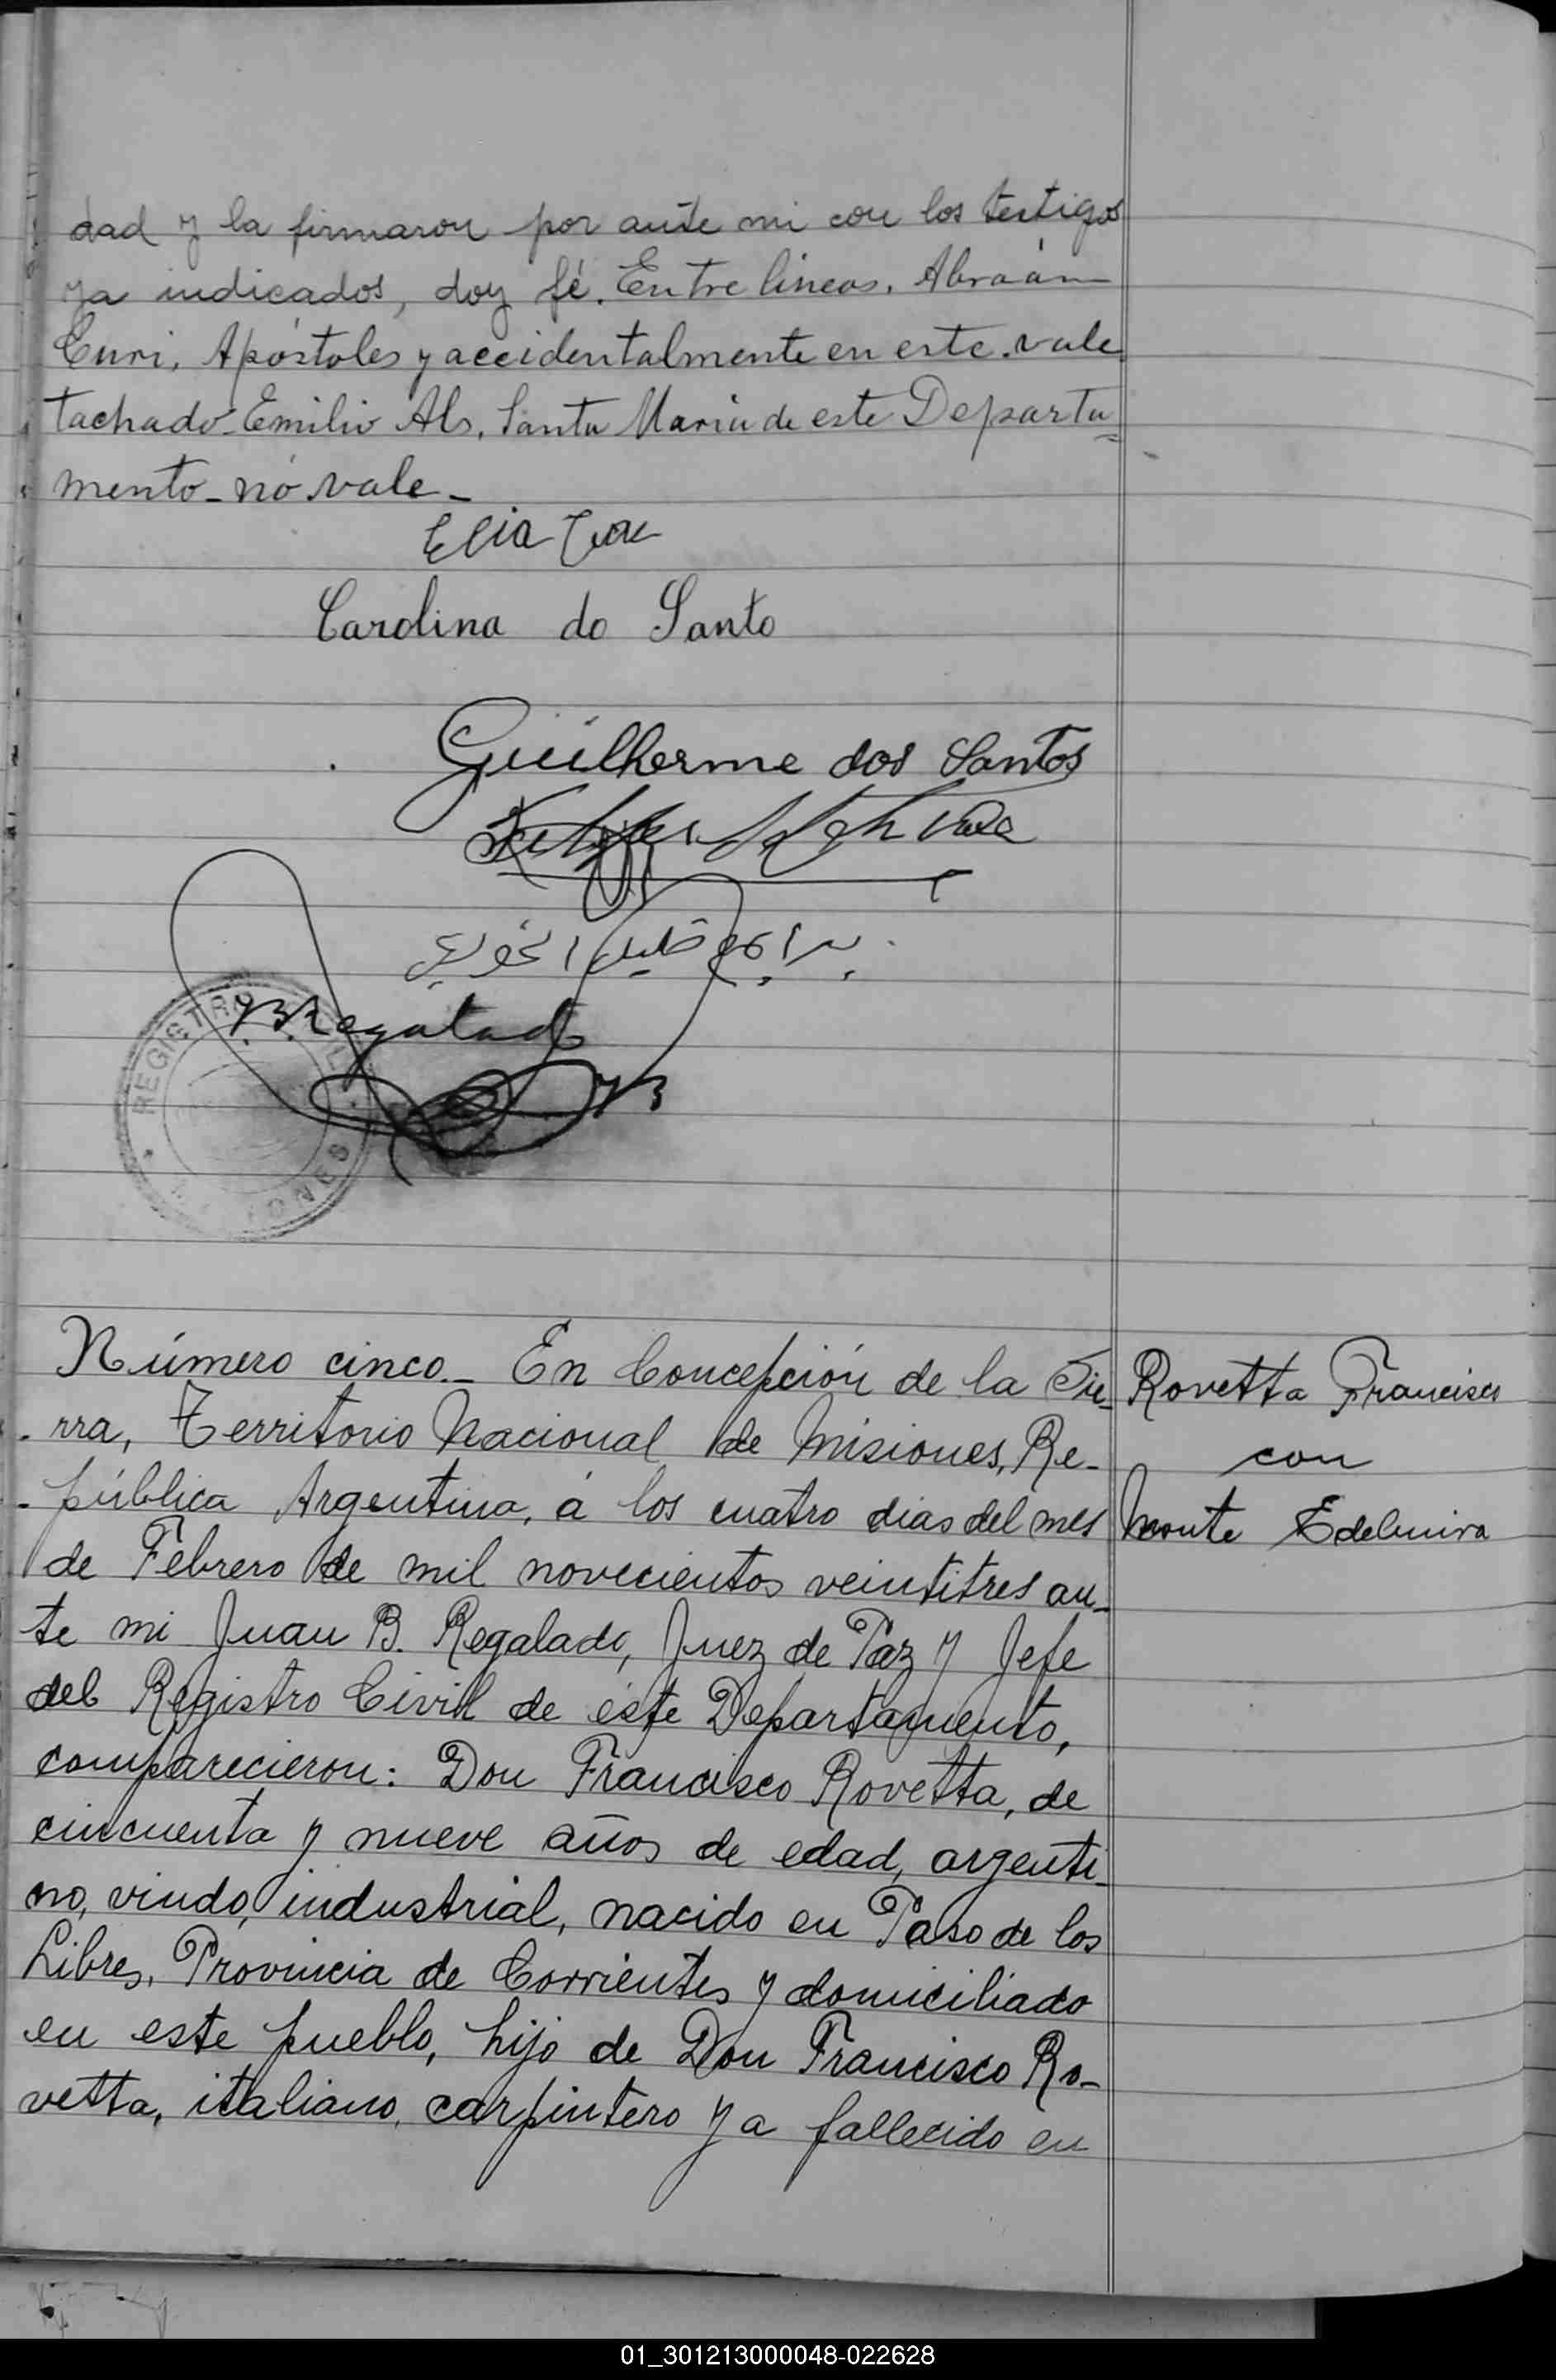 dad y la firmaron por ante mi con los testigos
ya indicados, doy fé. Entre lineas. Abraán
Curi, Apóstoles y accidentalmente en este. vale
Tachado Emilio Als. Santa Maria de este Departa=
mento_ no vale_
Elia
Carolina do Santo
Guilherme dos Santos
J.B. Regalado
REGISTRO CIVIL
MISIONES
Número cinco._ En Concepción de la Sie_
rra, Territorio Nacional de Misiones, Re-
pública Argentina, á los cuatro dias del mes
de Febrero de mil novecientos veintitres an_
te mi Juan B. Regalado, Juez de Paz y Jefe
del Registro Civil de éste Departamento,
comparecieron: Don Francisco Rovetta, de
cincuenta y nueve años de edad, argenti_
no, viudo, industrial, nacido en Paso de los
Libres, Provincia de Corrientes y domiciliado
en este pueblo, hijo de Don Francisco Ro-
vetta, italiano, carpintero ya fallecido en
Rovetta Francisco
con
Monte Edelmira
01_301213000048-022628